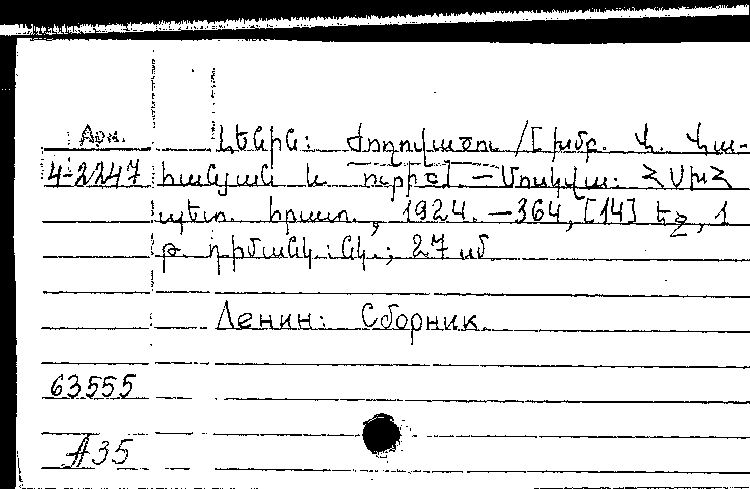 Арм.
4-2247
Լենին: Ժողովածու / [Խմբ. Վ. Վա-
հանյան և ուրիշ]. – Մոսկվա: ՀՍԽՀ
պետ. հրատ., 1924. – 364, [14] էջ, 1
թ. դիմանկ. նկ.; 27 սմ
Ленин: Сборник.
63555
A35